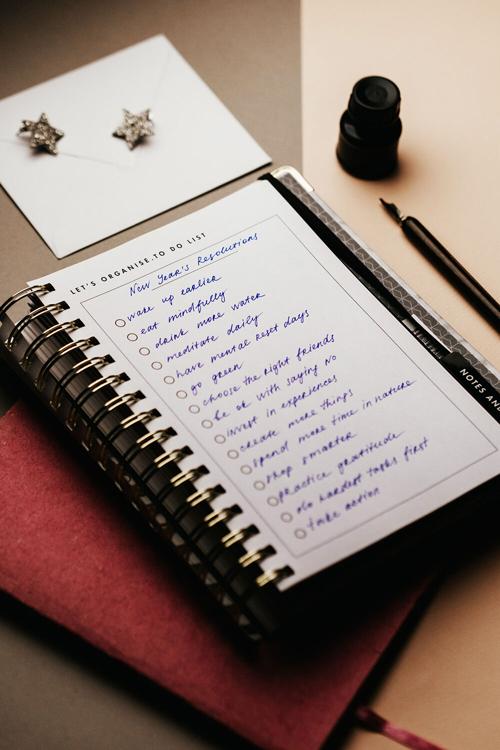 LET'S ORGANISE.TO DO LIST
New Year's Resolutions
wake up earlier
eat mindfully
drink more water
meditate daily
have mental reset days
go green
choose the right friends
be ok with saying NO
invest in experiences
create more things
spend more time in nature
shop smarter
practice gratitude
do hardest tasks first
take action
NOTES AN